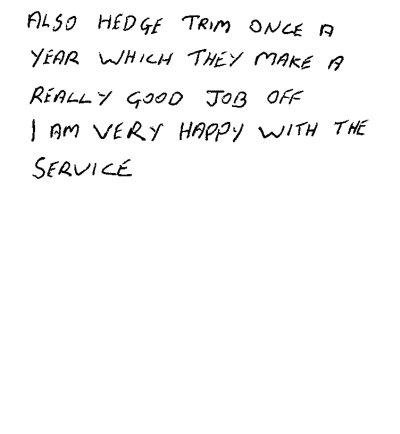 ALSO HEDGE TRIM ONCE A
YEAR WHICH THEY MAKE A
REALLY GOOD JOB OFF
I AM VERY HAPPY WITH THE
SERVICE